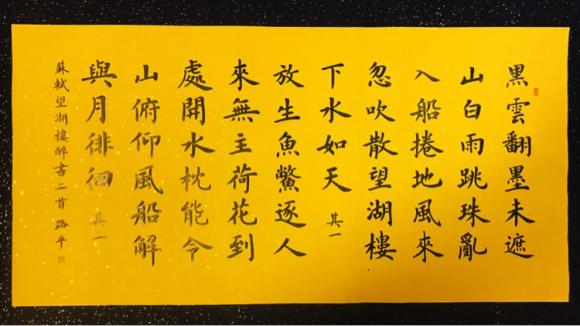 黑雲翻墨未遮
山白雨跳珠亂
入船捲地風來
忽吹散望湖樓
下水如天 其一
放生魚鱉逐人
來無主荷花到
處開水枕能令
山俯仰風船解
與月徘徊 其一
蘇軾望湖樓醉書二首 路平